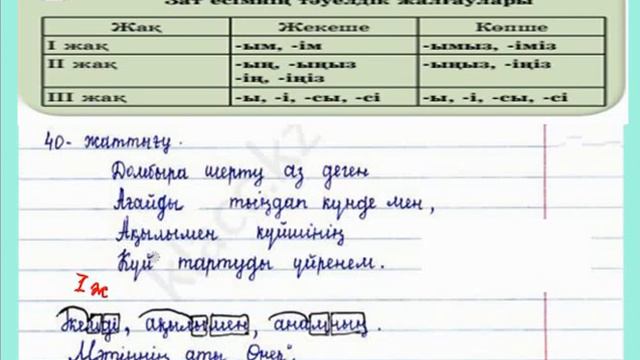 Зат есімнің тәуелдік жалғаулары
Жақ Жекеше Көпше
I жақ -ым, -ім -ымыз, -іміз
II жақ -ың, -ыңыз -ыңыз, -іңіз
-ің, -іңіз
III жақ -ы, -і, -сы, -сі -ы, -і, -сы, -сі
40- жаттығу.
Домбыра шерту аз деген
Ағайды тыңдап күнде мен,
Ақылымен күйшінің
Күй тартуды үйренем.
I ж
ақылымен, анамның.
Мәтіннің аты "Өнер".